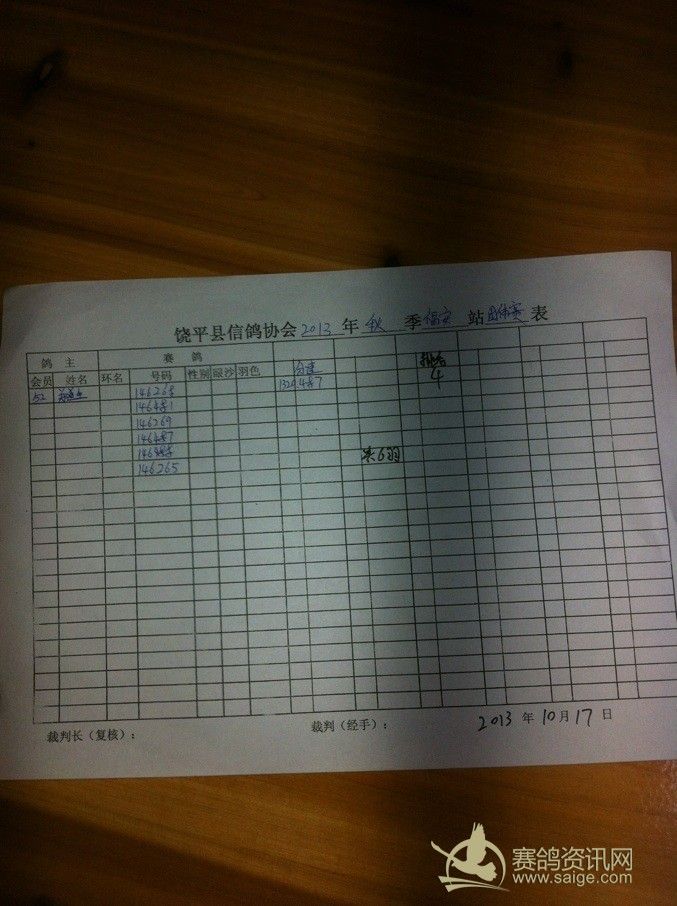 饶平县信鸽协会2013年秋季福安站团体赛表
鸽主 赛鸽
会员 姓名 环名 号码 性别 眼沙 羽色 分速 排名
52 1324.4 7 4
146268
1464 1
146269
1464 7
146 共6羽
146265
裁判长（复核）： 裁判（经手）： 2013年10月17日
赛鸽资讯网
www.saige.com